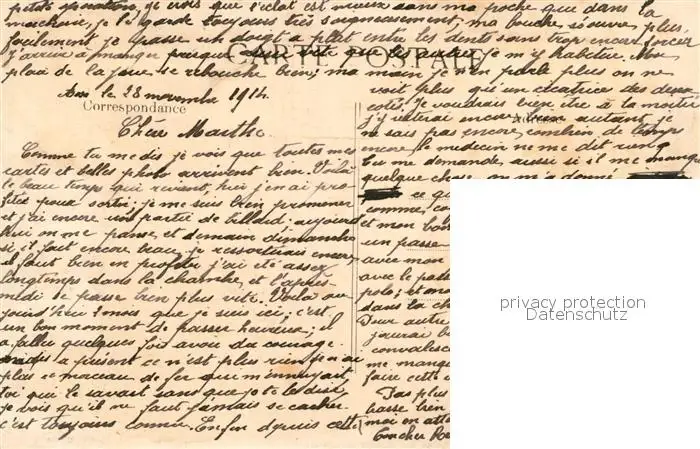 petite opération, je crois que l'éclat est mieux dans ma poche que dans la
machoire, je le garde toujours très soigneusement, ma bouche s'ouvre plus
facilement je passe un doigt a plat entre les dents sans trop encore forcer
j'arrive à manger presque que je m'y habitue. Mon
CARTE POSTALE
plai de la joue se rebouche bien; ma main je n'en parle plus on ne
le 28 novembre 1914
Correspondance
Chère Marthe
Comme tu me dis je vois que toutes mes
cartes et belles photo arrivent bien. Voilà
le beau temps qui revient, hier j'en ai pro-
fité pour sortir; je me suis bien promener
et j'ai encore une partie de billard: aujourd
hui on me panse et demain dimanche
si il fait encore beau, je ressortirais encore,
il faut bien en profiter j'ai été assez
longtemps dans la chambre, et l'après-
midi se passe bien plus vite. Voilà au
jours d'hui 1 mois que je suis ici; c'est
un bon moment de passer heureux; il
a fallu quelques fois avoir du courage.
mais a présent ce n'est plus rien je n'ai
plus ce morceau de fer qui m'ennuyait
toi qui le savait sans que je te le dise
je vois qu'il ne faut jamais se cacher
c'est toujours connu. Enfin depuis cette
voit plus qu'un cicatrice des deux
cotés. Je voudrais bien être à la moitié
j'y resterai encore bien autant, je
ne sais pas encore combien de temps
encore le medecin ne me dit rien
tu me demande aussi si il me manque
quelque chose on m'a donné
ce qu
comme, co
et mon bon
un passe
avec mon
avec le passe
polo; et mo
dans la ch
Pour autre
j'aurai l
convalesc
me manqu
faire cette c
Pas plus
basse bien
moi en atte
Coucher
privacy protection
Datenschutz